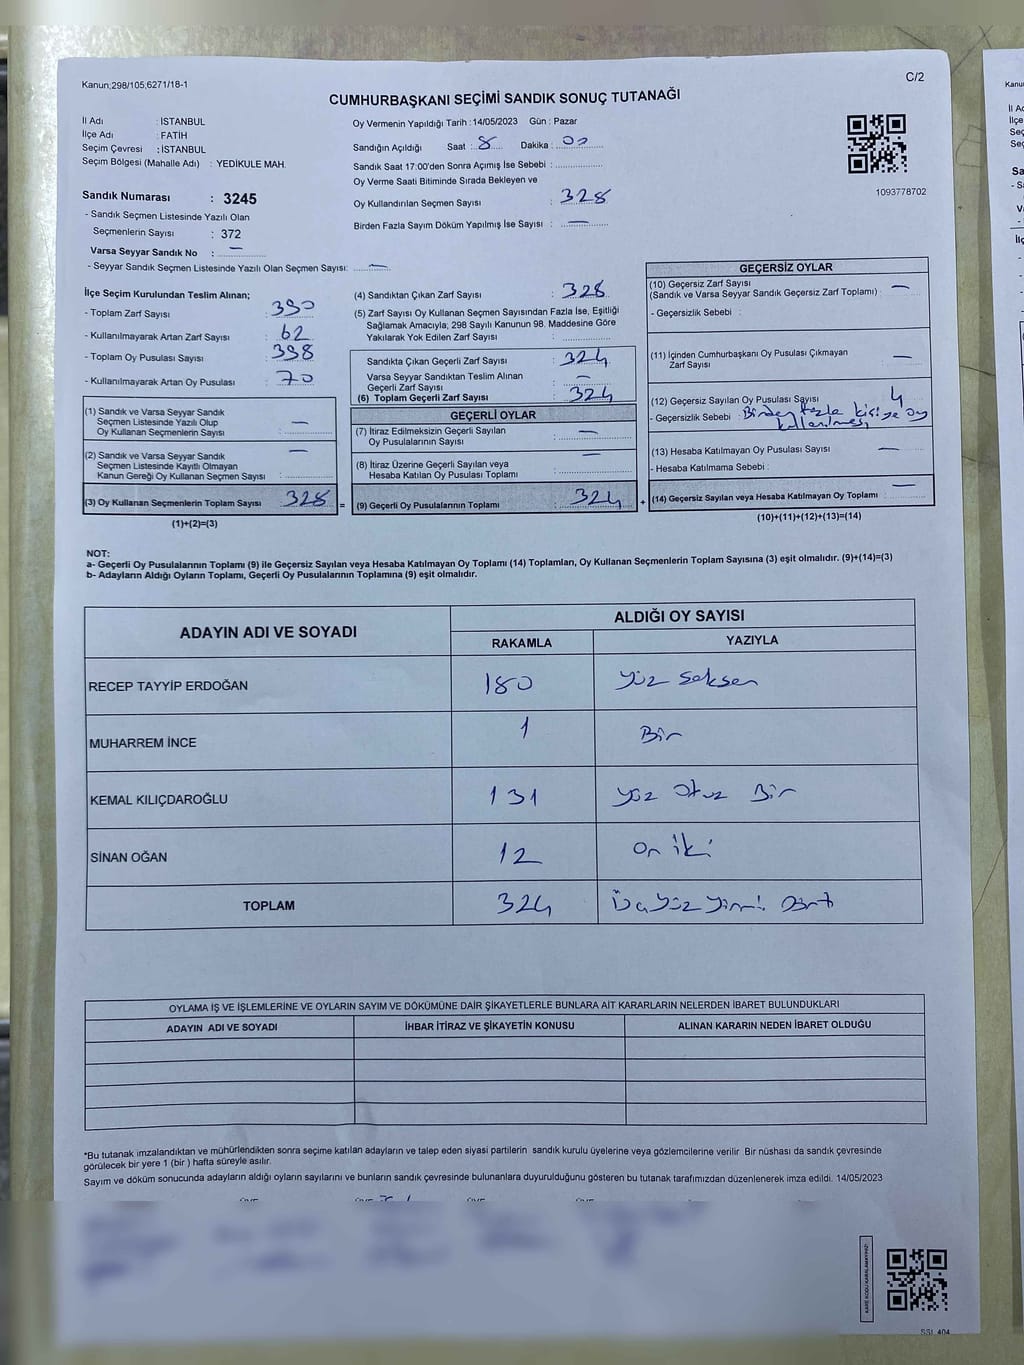 Kanun;298/105,6271/18-1
C/2
CUMHURBAŞKANI SEÇİMİ SANDIK SONUÇ TUTANAĞI
İl Adı : İSTANBUL
İlçe Adı : FATİH
Seçim Çevresi : İSTANBUL
Seçim Bölgesi (Mahalle Adı) : YEDİKULE MAH.
Sandık Numarası : 3245
- Sandık Seçmen Listesinde Yazılı Olan
Seçmenlerin Sayısı : 372
Varsa Seyyar Sandık No : —
- Seyyar Sandık Seçmen Listesinde Yazılı Olan Seçmen Sayısı: —
Oy Vermenin Yapıldığı Tarih : 14/05/2023 Gün : Pazar
Sandığın Açıldığı Saat : 8 Dakika : 00
Sandık Saat 17:00'den Sonra Açımış İse Sebebi :
Oy Verme Saati Bitiminde Sırada Bekleyen ve
Oy Kullandırılan Seçmen Sayısı : 328
Birden Fazla Sayım Döküm Yapılmış İse Sayısı : —
1093778702
İlçe Seçim Kurulundan Teslim Alınan;
- Toplam Zarf Sayısı : 390
- Kullanılmayarak Artan Zarf Sayısı : 62
- Toplam Oy Pusulası Sayısı : 398
- Kullanılmayarak Artan Oy Pusulası : 70
(1) Sandık ve Varsa Seyyar Sandık
Seçmen Listesinde Yazılı Olup
Oy Kullanan Seçmenlerin Sayısı : —
(2) Sandık ve Varsa Seyyar Sandık
Seçmen Listesinde Kayıtlı Olmayan
Kanun Gereği Oy Kullanan Seçmen Sayısı : —
(3) Oy Kullanan Seçmenlerin Toplam Sayısı : 328 =
(1)+(2)=(3)
(4) Sandıktan Çıkan Zarf Sayısı : 328
(5) Zarf Sayısı Oy Kullanan Seçmen Sayısından Fazla İse, Eşitliği
Sağlamak Amacıyla; 298 Sayılı Kanunun 98. Maddesine Göre
Yakılarak Yok Edilen Zarf Sayısı :
Sandıkta Çıkan Geçerli Zarf Sayısı : 324
Varsa Seyyar Sandıktan Teslim Alınan
Geçerli Zarf Sayısı : —
(6) Toplam Geçerli Zarf Sayısı : 324
GEÇERLİ OYLAR
(7) İtiraz Edilmeksizin Geçerli Sayılan
Oy Pusulalarının Sayısı : —
(8) İtiraz Üzerine Geçerli Sayılan veya
Hesaba Katılan Oy Pusulası Toplamı : —
(9) Geçerli Oy Pusulalarının Toplamı : 324 +
GEÇERSİZ OYLAR
(10) Geçersiz Zarf Sayısı
(Sandık ve Varsa Seyyar Sandık Geçersiz Zarf Toplamı) : —
- Geçersizlik Sebebi :
(11) İçinden Cumhurbaşkanı Oy Pusulası Çıkmayan
Zarf Sayısı : —
(12) Geçersiz Sayılan Oy Pusulası Sayısı : 4
- Geçersizlik Sebebi : Birden fazla kişiye oy
kullanılması
(13) Hesaba Katılmayan Oy Pusulası Sayısı : —
- Hesaba Katılmama Sebebi :
(14) Geçersiz Sayılan veya Hesaba Katılmayan Oy Toplamı : —
(10)+(11)+(12)+(13)=(14)
NOT:
a- Geçerli Oy Pusulalarının Toplamı (9) ile Geçersiz Sayılan veya Hesaba Katılmayan Oy Toplamı (14) Toplamları, Oy Kullanan Seçmenlerin Toplam Sayısına (3) eşit olmalıdır. (9)+(14)=(3)
b- Adayların Aldığı Oyların Toplamı, Geçerli Oy Pusulalarının Toplamına (9) eşit olmalıdır.
ADAYIN ADI VE SOYADI
ALDIĞI OY SAYISI
RAKAMLA YAZIYLA
RECEP TAYYİP ERDOĞAN 180 Yüz Seksen
MUHARREM İNCE 1 Bir
KEMAL KILIÇDAROĞLU 131 Yüz Otuz Bir
SİNAN OĞAN 12 On iki
TOPLAM 324 Üç Yüz Yirmi Dört
OYLAMA İŞ VE İŞLEMLERİNE VE OYLARIN SAYIM VE DÖKÜMÜNE DAİR ŞİKAYETLERLE BUNLARA AİT KARARLARIN NELERDEN İBARET BULUNDUKLARI
ADAYIN ADI VE SOYADI İHBAR İTİRAZ VE ŞİKAYETİN KONUSU ALINAN KARARIN NEDEN İBARET OLDUĞU
*Bu tutanak imzalandıktan ve mühürlendikten sonra seçime katılan adayların ve talep eden siyasi partilerin sandık kurulu üyelerine veya gözlemcilerine verilir. Bir nüshası da sandık çevresinde
görülecek bir yere 1 (bir ) hafta süreyle asılır.
Sayım ve döküm sonucunda adayların aldığı oyların sayılarını ve bunların sandık çevresinde bulunanlara duyurulduğunu gösteren bu tutanak tarafımızdan düzenlenerek imza edildi. 14/05/2023